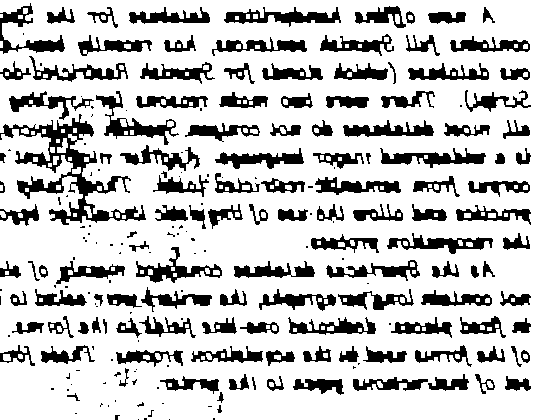 A new offline handwritten database for the Spa
contains full Spanish sentences, has recently been
ous database (which stands for Spanish Restricted do
Script). There were two main reasons for creating
all, most databases do not contain Spanish
is a widespread major language. Another important
corpus from semantic-restricted tasks. These
practice and allow the use of linguistic knowledge beyo
the recognition process.
As the Spartacus database consisted mainly of
not contain long paragraphs, the writers were asked to
in fixed places: dedicated one-line fields in the forms.
of the forms used in the acquisition process. These for
set of instructions given to the writer.